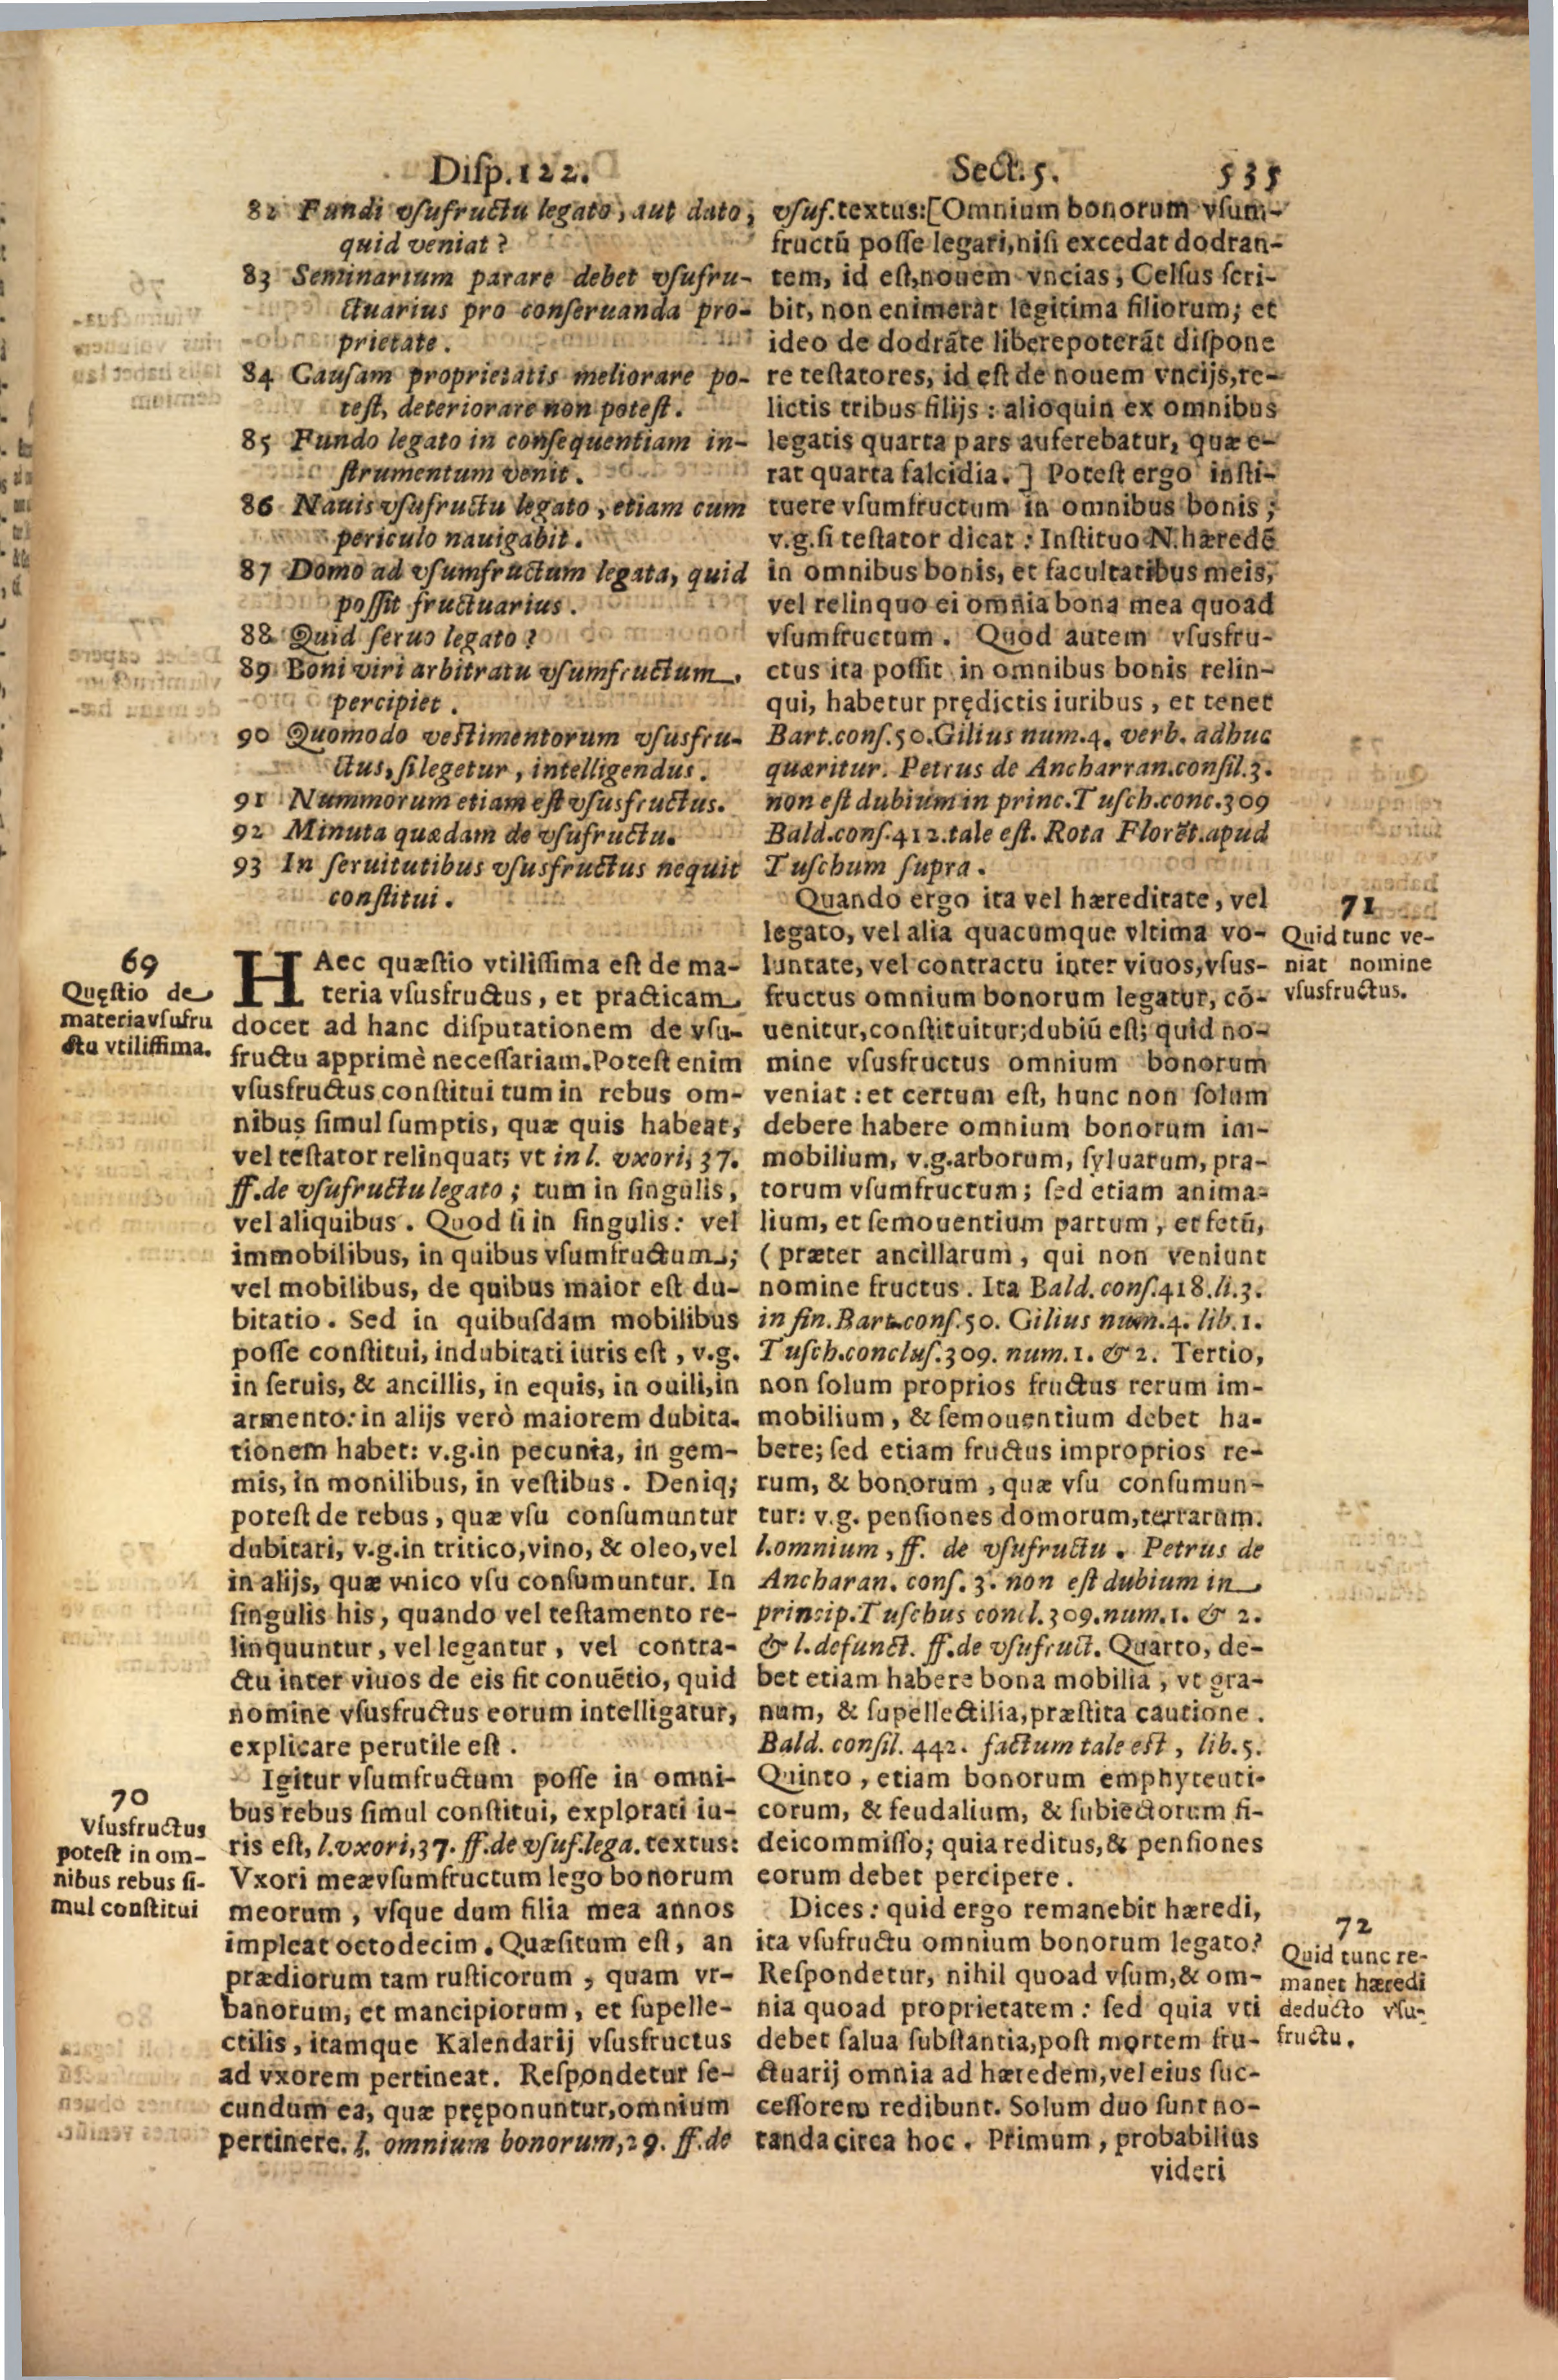 Disp.122. Sect.5. 535
82 Fundi vsufructu legato, aut dato,
quid veniat?
83 Seminarium parare debet vsufru-
ctuarius pro conseruanda pro-
prietate.
84 Causam proprietatis meliorare po-
test, deteriorare non potest.
85 Fundo legato in consequentiam in-
strumentum venit.
86 Nauis vsufructu legato, etiam cum
periculo nauigabit.
87 Domo ad vsumfructum legata, quid
possit fructuarius.
88 Quid seruo legato?
89 Boni viri arbitratu vsumfructum
percipiet.
90 Quomodo vestimentorum vsusfru-
ctus, si legetur, intelligendus.
91 Nummorum etiam est vsusfructus.
92 Minuta quædam de vsufructu.
93 In seruitutibus vsusfructus nequit
constitui.
69
Quęstio de
materia vsufru
ctu vtilissima.
HAec quæstio vtilissima est de ma-
teria vsusfructus, et practicam
docet ad hanc disputationem de vsu-
fructu apprimè necessariam. Potest enim
vsusfructus constitui tum in rebus om-
nibus simul sumptis, quæ quis habeat,
vel testator relinquat; vt in l. vxori, 37.
ff. de vsufructu legato; tum in singulis,
vel aliquibus. Quod si in singulis: vel
immobilibus, in quibus vsumfructum;
vel mobilibus, de quibus maior est du-
bitatio. Sed in quibusdam mobilibus
posse constitui, indubitati iuris est, v.g.
in seruis, & ancillis, in equis, in ouili, in
armento: in alijs verò maiorem dubita-
tionem habet: v.g. in pecunia, in gem-
mis, in monilibus, in vestibus. Deniq;
potest de rebus, quæ vsu consumuntur
dubitari, v.g. in tritico, vino, & oleo, vel
in alijs, quæ vnico vsu consumuntur. In
singulis his, quando vel testamento re-
linquuntur, vel legantur, vel contra-
ctu inter viuos de eis fit conuẽtio, quid
nomine vsusfructus eorum intelligatur,
explicare perutile est.
70
Vsusfructus
potest in om-
nibus rebus si-
mul constitui
Igitur vsumfructum posse in omni-
bus rebus simul constitui, explorati iu-
ris est, l. vxori, 37. ff. de vsuf. lega. textus:
Vxori meæ vsumfructum lego bonorum
meorum, vsque dum filia mea annos
impleat octodecim. Quæsitum est, an
prædiorum tam rusticorum, quam vr-
banorum, et mancipiorum, et supelle-
ctilis, itamque Kalendarij vsusfructus
ad vxorem pertineat. Respondetur se-
cundum ea, quæ pręponuntur, omnium
pertinere. l. omnium bonorum, 29. ff. de
vsuf. textus: [Omnium bonorum vsum-
fructũ posse legari, nisi excedat dodran-
tem, id est, nouem vncias, Celsus scri-
bit, non enim erat legitima filiorum; et
ideo de dodrãte libere poterãt dispone
re testatores, id est de nouem vncijs, re-
lictis tribus filijs: alioquin ex omnibus
legatis quarta pars auferebatur, quæ e-
rat quarta falcidia.] Potest ergo insti-
tuere vsumfructum in omnibus bonis;
v.g. si testator dicat: Instituo N. hæredẽ
in omnibus bonis, et facultatibus meis,
vel relinquo ei omnia bona mea quoad
vsumfructum. Quod autem vsusfru-
ctus ita possit in omnibus bonis relin-
qui, habetur prędictis iuribus, et tenet
Bart. cons. 50. Gilius num. 4. verb. adhuc
quæritur. Petrus de Ancharran. consil. 3.
non est dubium in princ. Tusch. conc. 309
Bald. cons. 412. tale est. Rota Florẽt. apud
Tuschum supra.
71
Quid tunc ve-
niat nomine
vsusfructus.
Quando ergo ita vel hæreditate, vel
legato, vel alia quacumque vltima vo-
luntate, vel contractu inter viuos, vsus-
fructus omnium bonorum legatur, cõ-
uenitur, constituitur; dubiũ est; quid no-
mine vsusfructus omnium bonorum
veniat: et certum est, hunc non solum
debere habere omnium bonorum im-
mobilium, v.g. arborum, syluarum, pra-
torum vsumfructum; sed etiam anima-
lium, et semouentium partum, et fetũ,
(præter ancillarum, qui non veniunt
nomine fructus. Ita Bald. cons. 418. li. 3.
in fin. Bart. cons. 50. Gilius num. 4. lib. 1.
Tusch. conclus. 309. num. 1. & 2. Tertio,
non solum proprios fructus rerum im-
mobilium, & semouentium debet ha-
bere; sed etiam fructus improprios re-
rum, & bonorum, quæ vsu consumun-
tur: v.g. pensiones domorum, terrarum.
l. omnium, ff. de vsufructu. Petrus de
Ancharan. cons. 3. non est dubium in
princip. Tuschus concl. 309. num. 1. & 2.
& l. defunct. ff. de vsufruct. Quarto, de-
bet etiam habere bona mobilia, vt gra-
num, & supellectilia, præstita cautione.
Bald. consil. 442. factum tale est, lib. 5.
Quinto, etiam bonorum emphyteuti-
corum, & feudalium, & subiectorum fi-
deicommisso; quia reditus, & pensiones
eorum debet percipere.
72
Quid tunc re-
manet hæredi
deducto vsu-
fructu.
Dices: quid ergo remanebit hæredi,
ita vsufructu omnium bonorum legato?
Respondetur, nihil quoad vsum, & om-
nia quoad proprietatem: sed quia vti
debet salua substantia, post mortem fru-
ctuarij omnia ad hæredem, vel eius suc-
cessorem redibunt. Solum duo sunt no-
tanda circa hoc. Primum, probabilius
videri